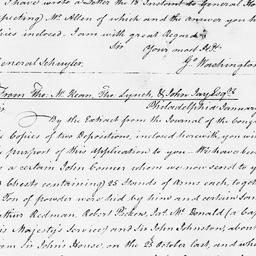 I have wrote a Letter the 18 Instant to General Ho
specting Mr. Allen of which and the answer you h
pies inclosed. I am with great Regard
Sir Your most Hble
General Schuyler. Go. Washington
From Tho. Mc. Kean, Tho. Lynch, & John Jay Esqrs
Philadelphia January
Sir
By the Extract from the Journal of the Cong
Copies of two Depositions, inclosed herewith, you wi
the purport of this Application to you We have been
a certain John Conner whom we now send to y
Chests containing 25 Stands of Arms each, togeth
Ton of powder were hid by him and certain
Arthur Redman, Robert Picken, Mc. Donald (a Cap
His Majesty's Service) and Sir John Johnston, abou
om Sir John's House, on the 25 October last, and wh